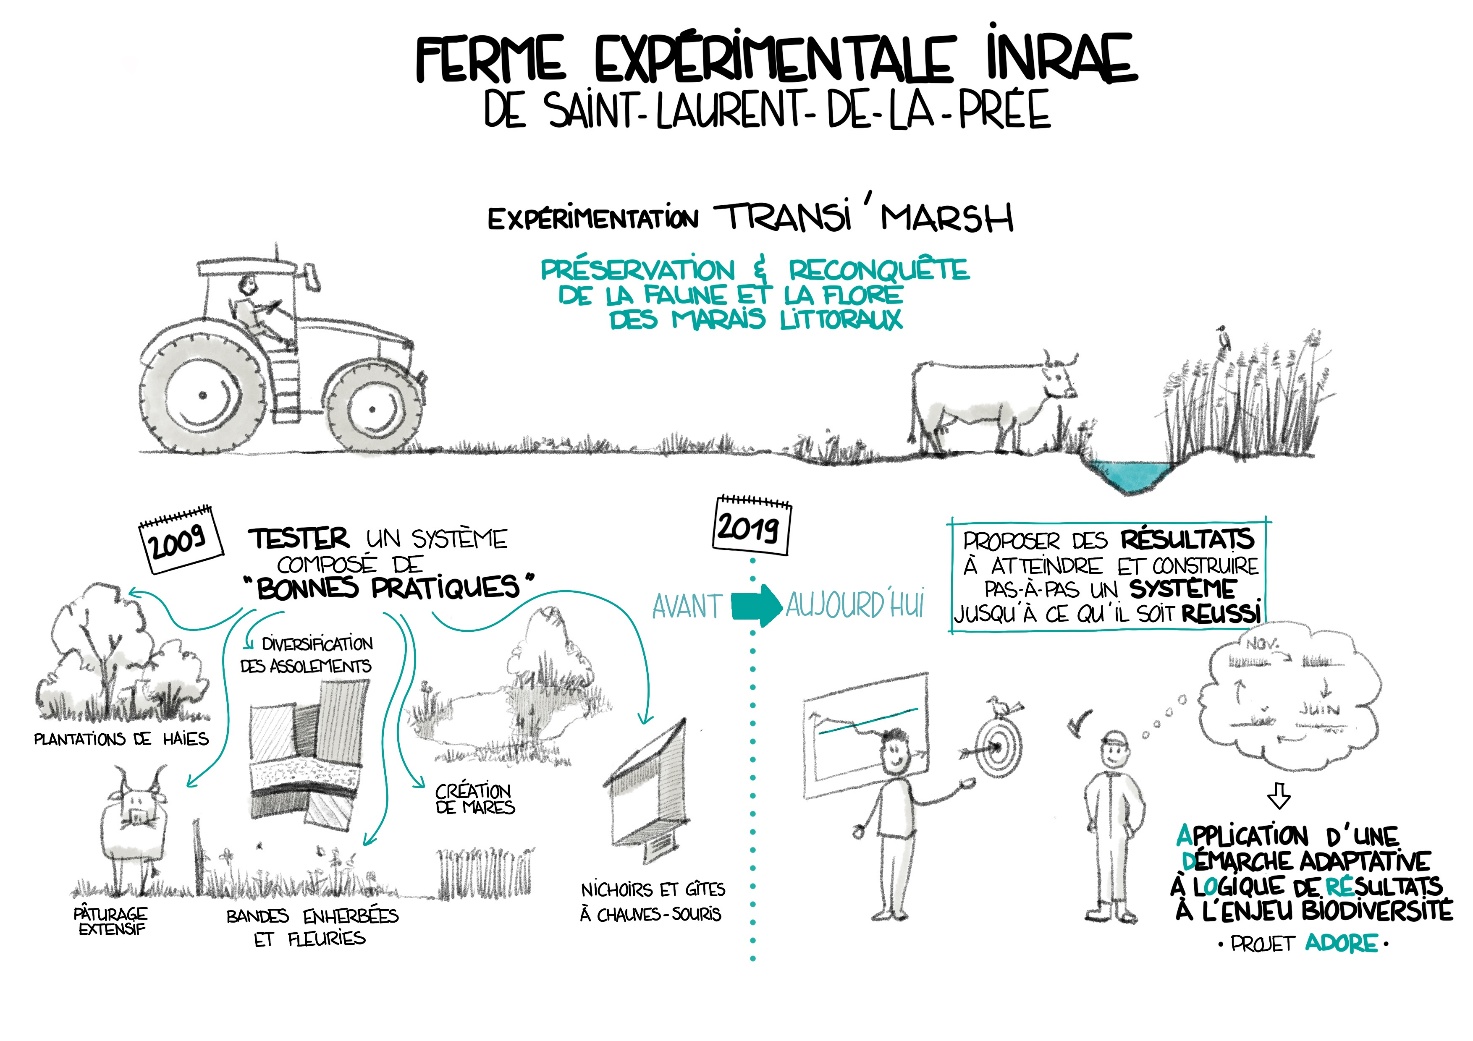 FERME EXPÉRIMENTALE INRAE
DE SAINT-LAURENT-DE-LA-PRÉE
EXPÉRIMENTATION TRANSI'MARSH
PRÉSERVATION & RECONQUÊTE
DE LA FAUNE ET LA FLORE
DES MARAIS LITTORAUX
2009
TESTER UN SYSTÈME
COMPOSÉ DE
"BONNES PRATIQUES"
DIVERSIFICATION
DES ASSOLEMENTS
PLANTATIONS DE HAIES
CRÉATION
DE MARES
PÂTURAGE
EXTENSIF
BANDES ENHERBÉES
ET FLEURIES
NICHOIRS ET GÎTES
À CHAUVES-SOURIS
2019
AVANT
AUJOURD'HUI
PROPOSER DES RÉSULTATS
À ATTEINDRE ET CONSTRUIRE
PAS-À-PAS UN SYSTÈME
JUSQU'À CE QU'IL SOIT REUSSI
NOV.
JUIN
APPLICATION D'UNE
DÉMARCHE ADAPTATIVE
À LOGIQUE DE RÉSULTATS
À L'ENJEU BIODIVERSITÉ
• PROJET ADORE •